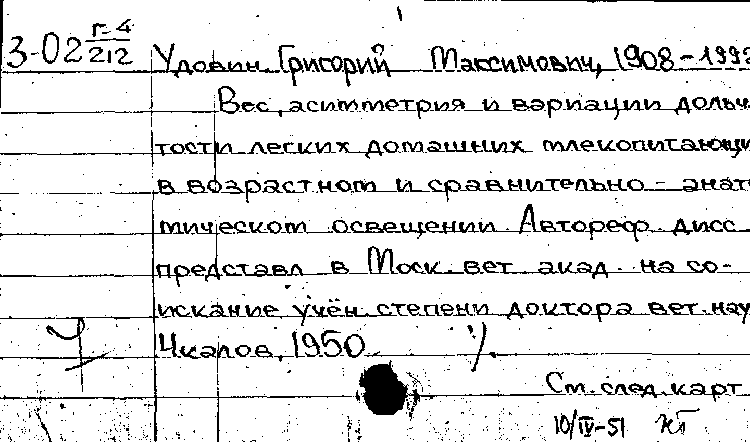 3-02 г-4/212
Удовин Григорий Максимович, 1908-1992
Вес, асимметрия и вариации дольча
тости легких домашних млекопитающи
в возрастном и сравнительно-анато
мическом освещении. Автореф. дисс.
представл. в Моск. вет. акад. на со-
искание учён. степени доктора вет. нау
Чкалов, 1950.
См. след. карт
10/IV-51